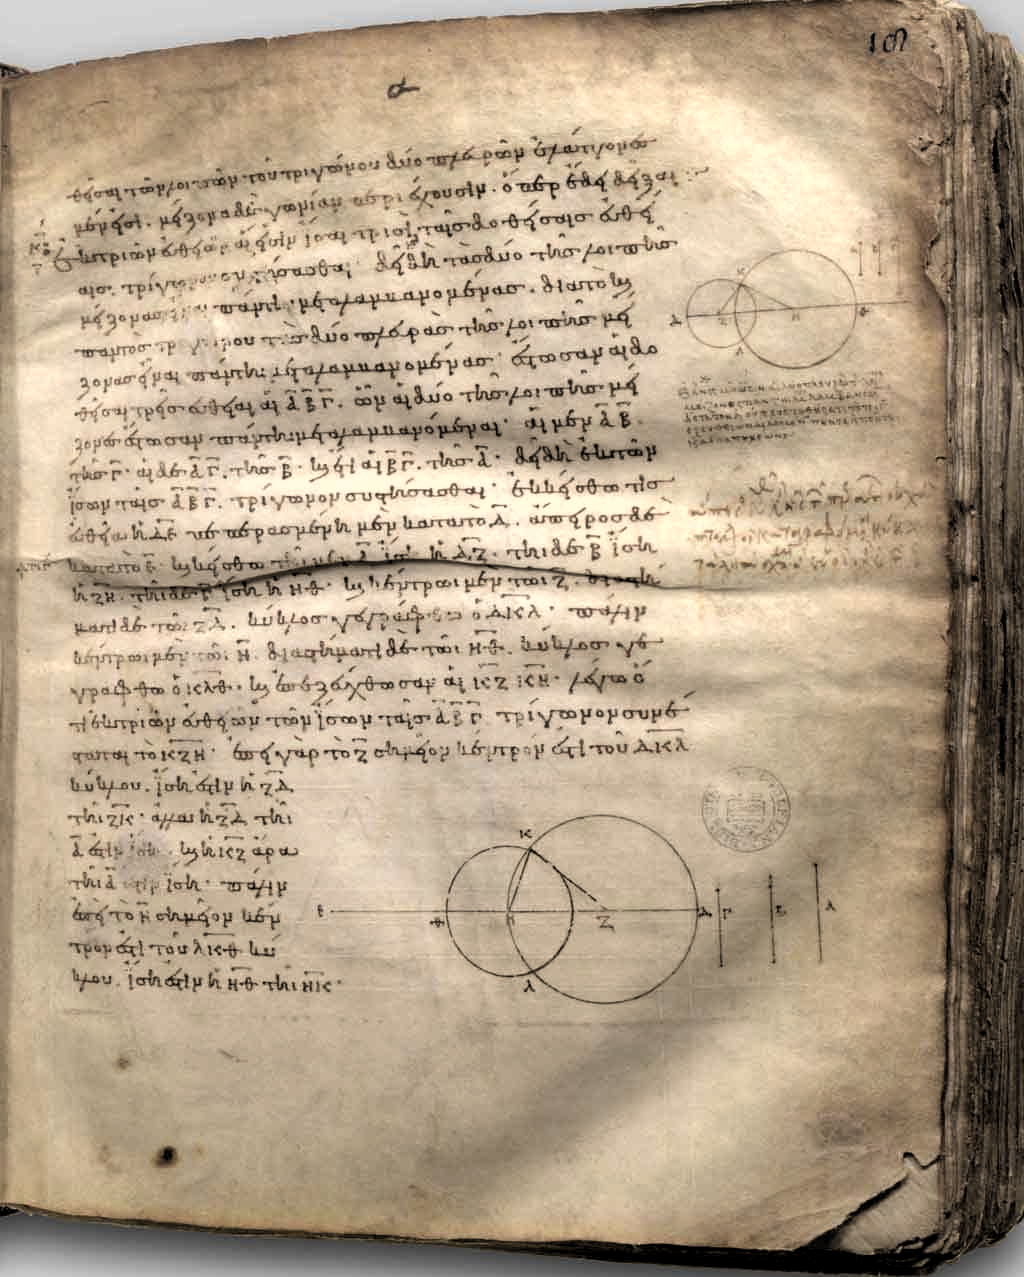 α
θεῖσαι τῶν λοιπῶν τοῦ τριγώνου δύο πλευρῶν ἐλάττονες
μέν εἰσι. μείζονα δὲ γωνίαν περιέχουσιν. ὅπερ ἔδει δεῖξαι
Ἐκ τριῶν εὐθειῶν αἵ εἰσιν ἴσαι τρισὶ ταῖς δοθείσαις εὐθεί
αις. τρίγωνον συστήσασθαι· δεῖ δὴ τὰς δύο τῆς λοιπῆς
μείζονας εἶναι πάντηι μεταλαμβανομένας. διὰ τὸ καὶ
παντὸς τριγώνου τὰς δύο πλευρὰς τῆς λοιπῆς μεί
ζονας εἶναι πάντηι μεταλαμβανομένας· ἔστωσαν αἱ δο
θεῖσαι τρεῖς εὐθεῖαι αἱ Α Β Γ. ὧν αἱ δύο τῆς λοιπῆς μεί
ζονες ἔστωσαν πάντηι μεταλαμβανόμεναι· αἱ μὲν Α Β.
τῆς Γ· αἱ δὲ Α Γ. τῆς Β· καὶ ἔτι αἱ Β Γ. τῆς Α· δεῖ δὴ ἐκ τῶν
ἴσων ταῖς Α Β Γ. τρίγωνον συστήσασθαι· ἐκκείσθω τις
εὐθεῖα ἡ ΔΕ πεπερασμένη μὲν κατὰ τὸ Δ. ἄπειρος δὲ
κατὰ τὸ Ε· καὶ κείσθω τῆι μὲν Α ἴση ἡ ΔΖ. τῆι δὲ Β ἴση
ἡ ΖΗ. τῆι δὲ Γ ἴση ἡ ΗΘ· καὶ κέντρωι μὲν τῶι Ζ. διαστή
ματι δὲ τῶι ΖΔ. κύκλος γεγράφθω ὁ ΔΚΛ· πάλιν
κέντρωι μὲν τῶι Η. διαστήματι δὲ τῶι ΗΘ. κύκλος γε
γράφθω ὁ ΚΛΘ· καὶ ἐπεζεύχθωσαν αἱ ΚΖ ΚΗ· λέγω ὅ
τι ἐκ τριῶν εὐθειῶν τῶν ἴσων ταῖς Α Β Γ τρίγωνον συνέ
σταται τὸ ΚΖΗ· ἐπεὶ γὰρ τὸ Ζ σημεῖον κέντρον ἐστὶ τοῦ ΔΚΛ
κύκλου. ἴση ἐστὶν ἡ ΖΔ
τῆι ΖΚ· ἀλλὰ ἡ ΖΔ τῆι
Α ἐστὶν ἴση. καὶ ἡ ΚΖ ἄρα
τῆι Α ἐστὶν ἴση· πάλιν
ἐπεὶ τὸ Η σημεῖον κέν
τρον ἐστὶ τοῦ ΛΚΘ κύ
κλου. ἴση ἐστὶν ἡ ΗΘ τῆι ΗΚ·
Κ
Δ Ζ Η Θ
Λ
Κ
Ε Θ Η Ζ Δ Γ Β Α
Λ